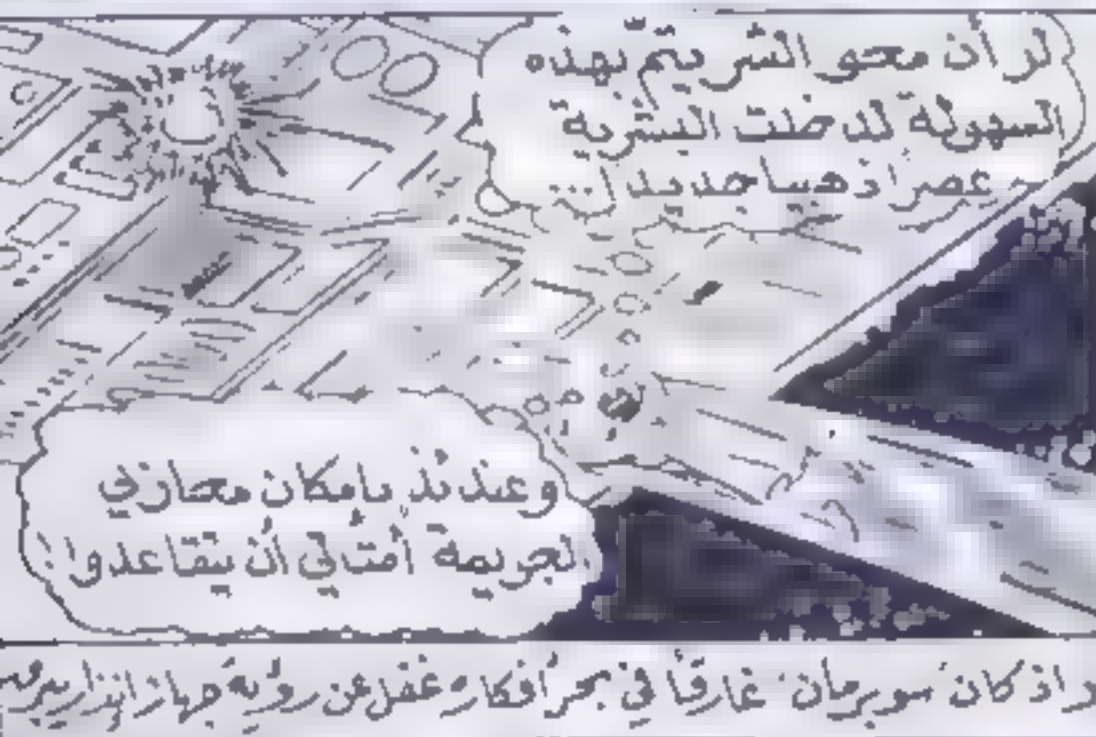 لو أن محو الشر يتمّ بهذه
السهولة لدخلت البشرية
عصراً ذهبيا جديدا...
وعندئذ بإمكان محاربي
الجريمة أمثالي أن يتقاعدوا!
و اذ كان "سوبرمان" غارقاً في بحر أفكاره غفل عن رؤية جهاز انذار